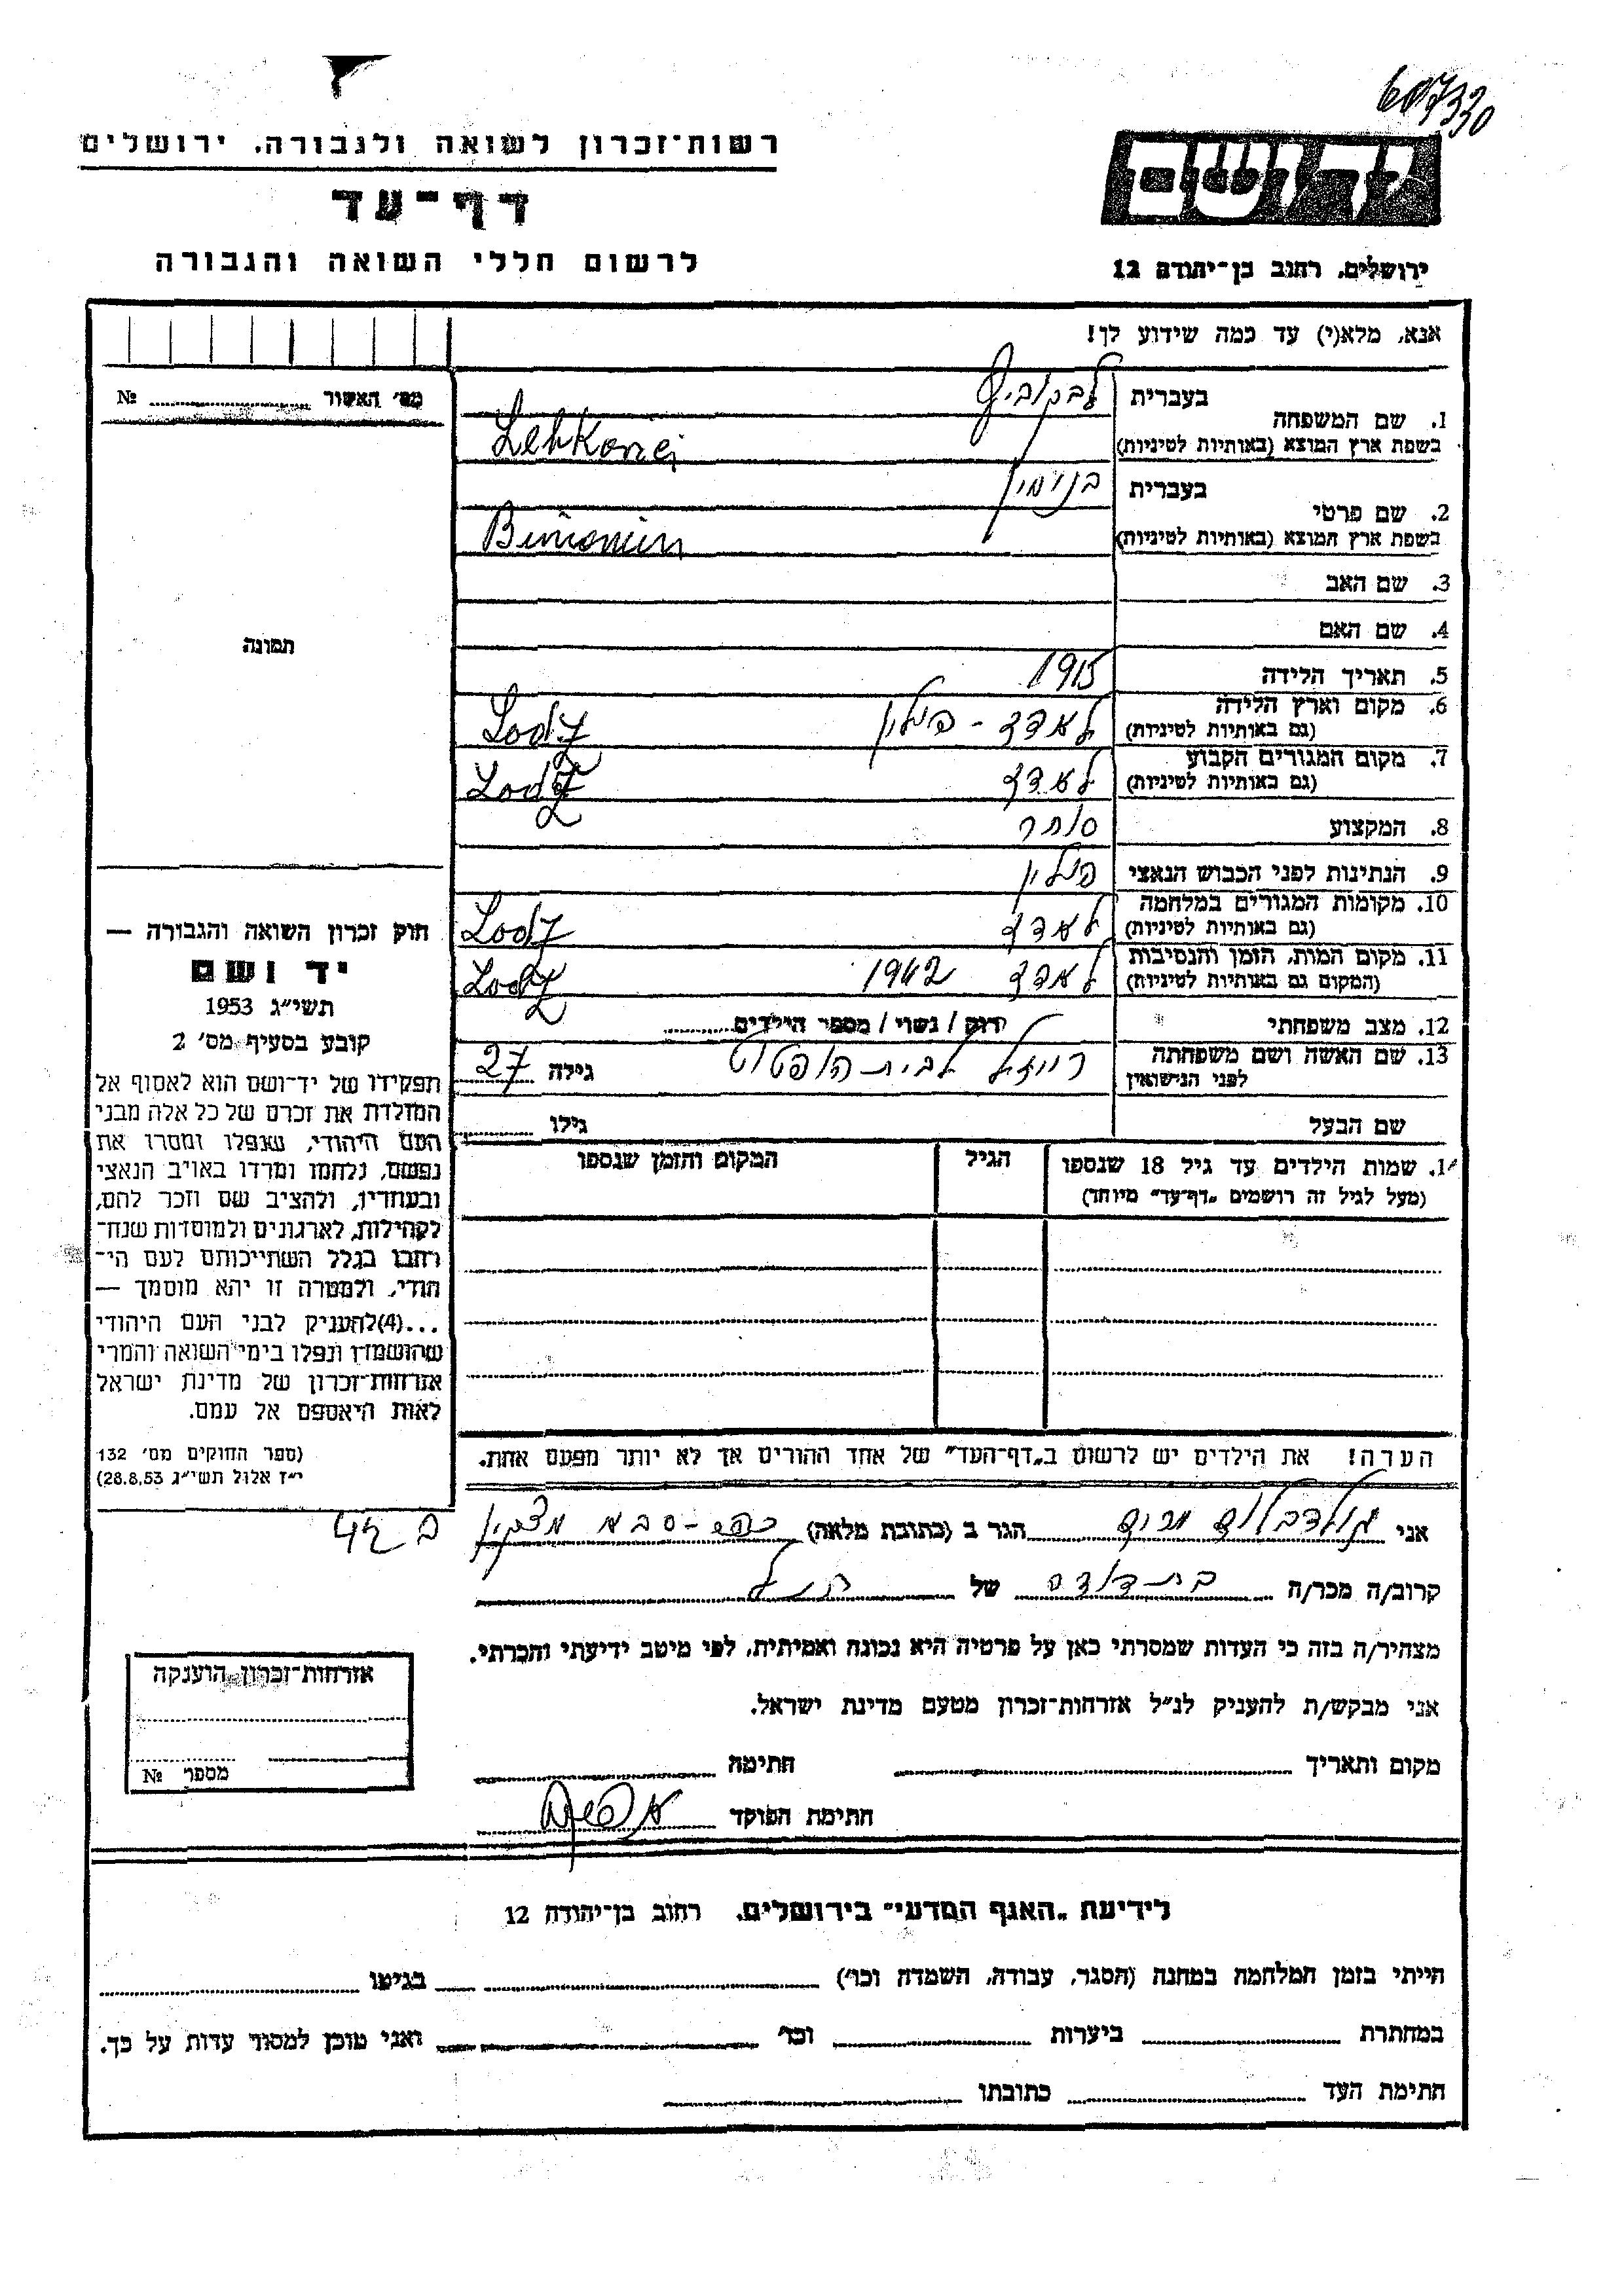 607330
רשות־זכרון לשואה ולגבורה. ירושלים
דף־עד
לרשום חללי השואה והגבורה
יד ושם
ירושלים. רחוב בן־יהודה 12
אנא, מלא(י) עד כמה שידוע לך!
מס׳ האשור № ........
1. שם המשפחה
בעברית לבקוביץ
בשפת ארץ המוצא (באותיות לטיניות)
2. שם פרטי
בעברית בנימין
בשפת ארץ המוצא (באותיות לטיניות) Biniomin
3. שם האב
4. שם האם
5. תאריך הלידה 1915
6. מקום וארץ הלידה לאדז - פולין Lodz
(גם באותיות לטיניות)
7. מקום המגורים הקבוע לאדז Lodz
(גם באותיות לטיניות)
8. המקצוע סוחר
9. הנתינות לפני הכבוש הנאצי פולין
10. מקומות המגורים במלחמה לאדז Lodz
(גם באותיות לטיניות)
11. מקום המות, הזמן והנסיבות לאדז 1942 Lodz
(המקום גם באותיות לטיניות)
12. מצב משפחתי רווק / נשוי / מספר הילדים........
13. שם האשה ושם משפחתה לפני הנישואין רייזל לבית גילה 27
שם הבעל גילו ........
14. שמות הילדים עד גיל 18 שנספו הגיל המקום והזמן שנספו
(מעל לגיל זה רושמים „דף־עד״ מיוחד)
הערה! את הילדים יש לרשום ב„דף־העד״ של אחד ההורים אך לא יותר מפעם אחת.
תמונה
חוק זכרון השואה והגבורה —
יד ושם
תשי״ג 1953
קובע בסעיף מס׳ 2
תפקידו של יד־ושם הוא לאסוף אל
המולדת את זכרם של כל אלה מבני
העם היהודי, שנפלו ומסרו את
נפשם, נלחמו ומרדו באויב הנאצי
ובעוזריו, ולהציב שם וזכר להם,
לקהילות, לארגונים ולמוסדות שנח־
רבו בגלל השתייכותם לעם הי־
הודי, ולמטרה זו יהא מוסמך —
...(4)להעניק לבני העם היהודי
שהושמדו ונפלו בימי השואה והמרי
אזרחות־זכרון של מדינת ישראל
לאות היאספם אל עמם.
(ספר החוקים מס׳ 132
י״ז אלול תשי״ג 28.8.53)
אני גולדבלום הגר ב (כתובת מלאה)
קרוב/ה מכר/ה בת-דודה של הנ״ל
מצהיר/ה בזה כי העדות שמסרתי כאן על פרטיה היא נכונה ואמיתית, לפי מיטב ידיעתי והכרתי.
אני מבקש/ת להעניק לנ״ל אזרחות־זכרון מטעם מדינת ישראל.
מקום ותאריך ........ חתימה ........
חתימת הפוקד
אזרחות־זכרון הוענקה
מספר №
לידיעת „האגף המדעי״ בירושלים, רחוב בן־יהודה 12
הייתי בזמן המלחמה במחנה (הסגר, עבודה, השמדה וכו׳) ........ בגיטו ........
במחתרת ........ ביערות ........ וכו׳ ........ ואני מוכן למסור עדות על כך.
חתימת העד ........ כתובתו ........